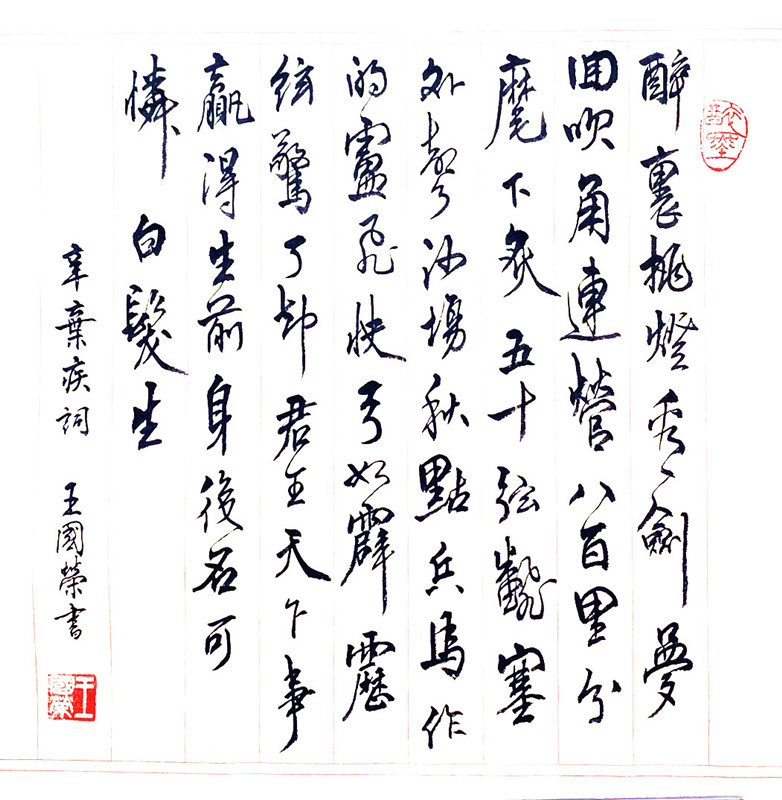 醉裏挑燈看劍夢
回吹角連營八百里分
麾下炙五十弦翻塞
外聲沙場秋點兵馬作
的盧飛快弓如霹靂
絃驚了却君王天下事
贏得生前身後名可
憐白髮生
辛棄疾詞 王國榮書
王國榮